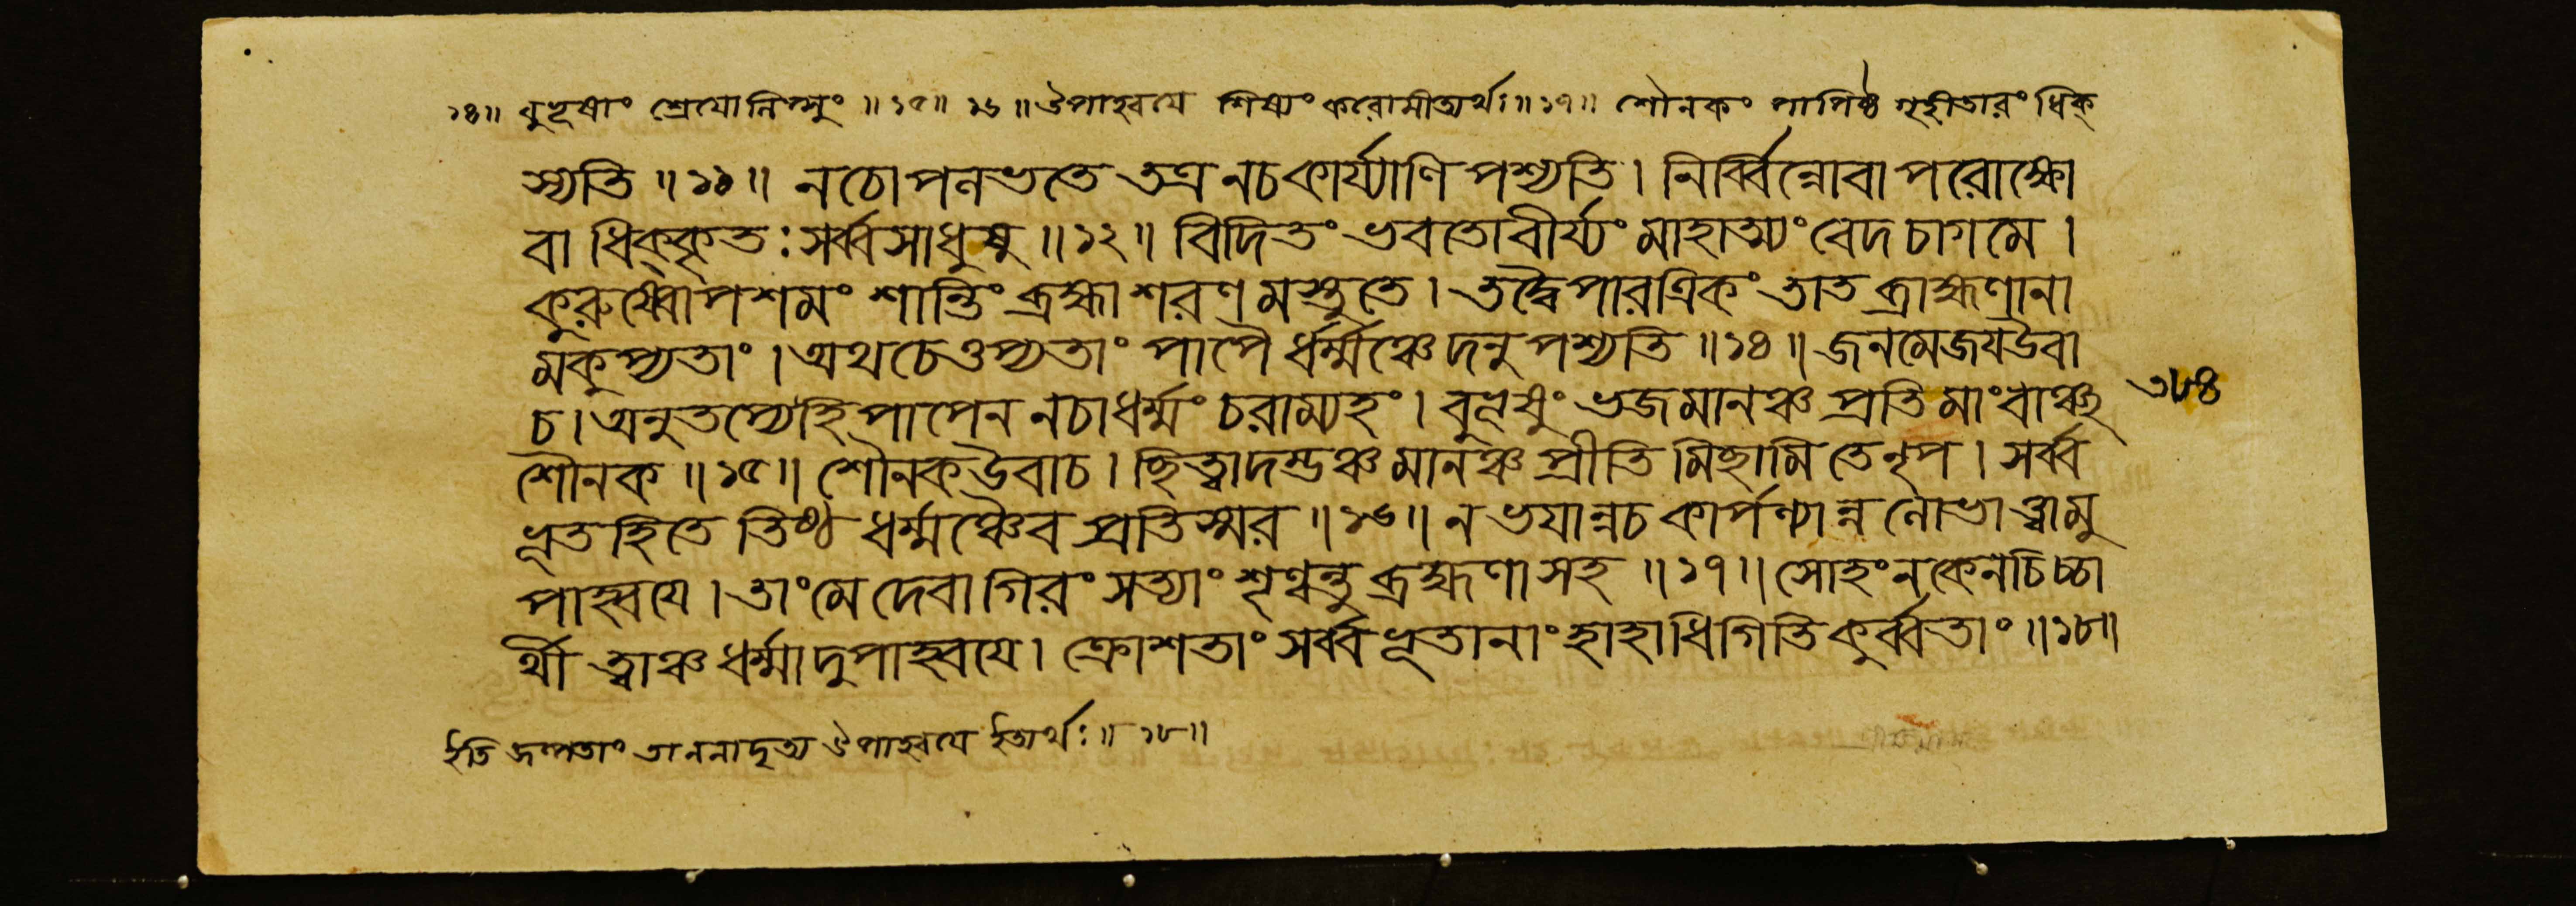 ১৪॥ বুভূষাং শ্রেযোলিপ্সুং ॥১৫॥ ১৬॥ উপাহ্বযে শিষ্যং করোমীত্যর্থঃ॥১৭॥ শৌনকং পাপিষ্ঠ গৃহীতারং ধিক্
স্যতি ॥১১॥ নচোপলভতে তত্র নচকার্য্যাণি পশ্যতি। নির্ব্বিন্নোবা পরোক্ষো
বা ধিক্কৃতঃ সর্ব্বসাধুষু ॥১২॥ বিদিতং ভবতোবীর্য্যং মাহাত্ম্যং বেদ চাগমে।
কুরুষ্বোপশমং শান্তিং ব্রহ্মা শরণমস্তুতে। তদ্বৈপারত্রিকং তাত ব্রাহ্মণানা
মকুপ্যতাং। অথচেত্তপ্যতাং পাপৈ র্ধর্ম্মঞ্চেদনুপশ্যতি ॥১৪॥ জনমেজযউবা
চ। অনুতপ্যেহিপাপেন নচাধর্ম্মং চরাম্যহং। বুভূষুং ভজমানঞ্চ প্রতি মাংবাঞ্ছ ৩৮৪
শৌনক ॥১৫॥ শৌনকউবাচ। হিত্বাদম্ভঞ্চ মানঞ্চ প্রীতি মিছামি তেনৃপ। সর্ব্ব
ভূতহিতে তিষ্ঠ ধর্ম্মঞ্চৈব প্রতিস্মর ॥১৬॥ ন ভযান্নচ কার্পণ্যান্ন লোভাত্ত্বামু
পাহ্বযে। তাংমে দেবাগিরং সত্যাং শৃণ্বন্তু ব্রহ্মণাসহ ॥১৭॥ সোহংনকেনচিচ্চা
র্থী ত্বাঞ্চ ধর্ম্মাদুপাহ্বযে। ক্রোশতাং সর্ব্বভূতানাং হাহাধিগিতি কুর্ব্বতাং ॥১৮॥
ইতি জল্পতাং তাননাদৃত্য উপাহ্বযে ইত্যর্থঃ॥১৮॥